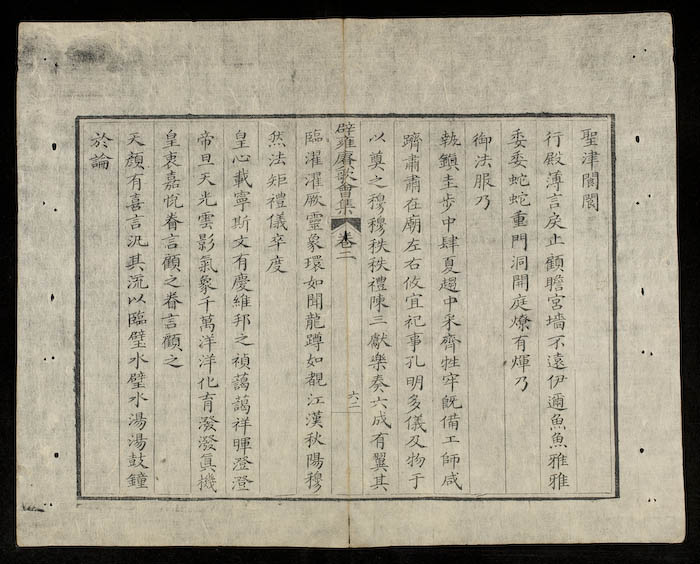 聖津閬閬
行殿薄言戾止顧瞻宮墻不遠伊邇魚魚雅雅
委委蛇蛇重門洞開庭燎有煇乃
御法服乃
執鎮圭步中肆夏趨中采齊牲牢旣備工師咸
躋肅肅在廟左右攸宜祀事孔明多儀及物于
以奠之穆穆秩秩禮陳三獻樂奏六成有翼其
辟雍賡歌會集 卷二 六二
臨濯濯厥靈象環如聞龍蹲如覩江漢秋陽穆
然法矩禮儀卒度
皇心載寧斯文有慶維邦之禎藹藹祥暉澄澄
帝旦天光雲影氣象千萬洋洋化育潑潑眞機
皇衷嘉悅眷言顧之眷言顧之
天顏有喜言汎其流以臨璧水璧水湯湯鼓鐘
於論